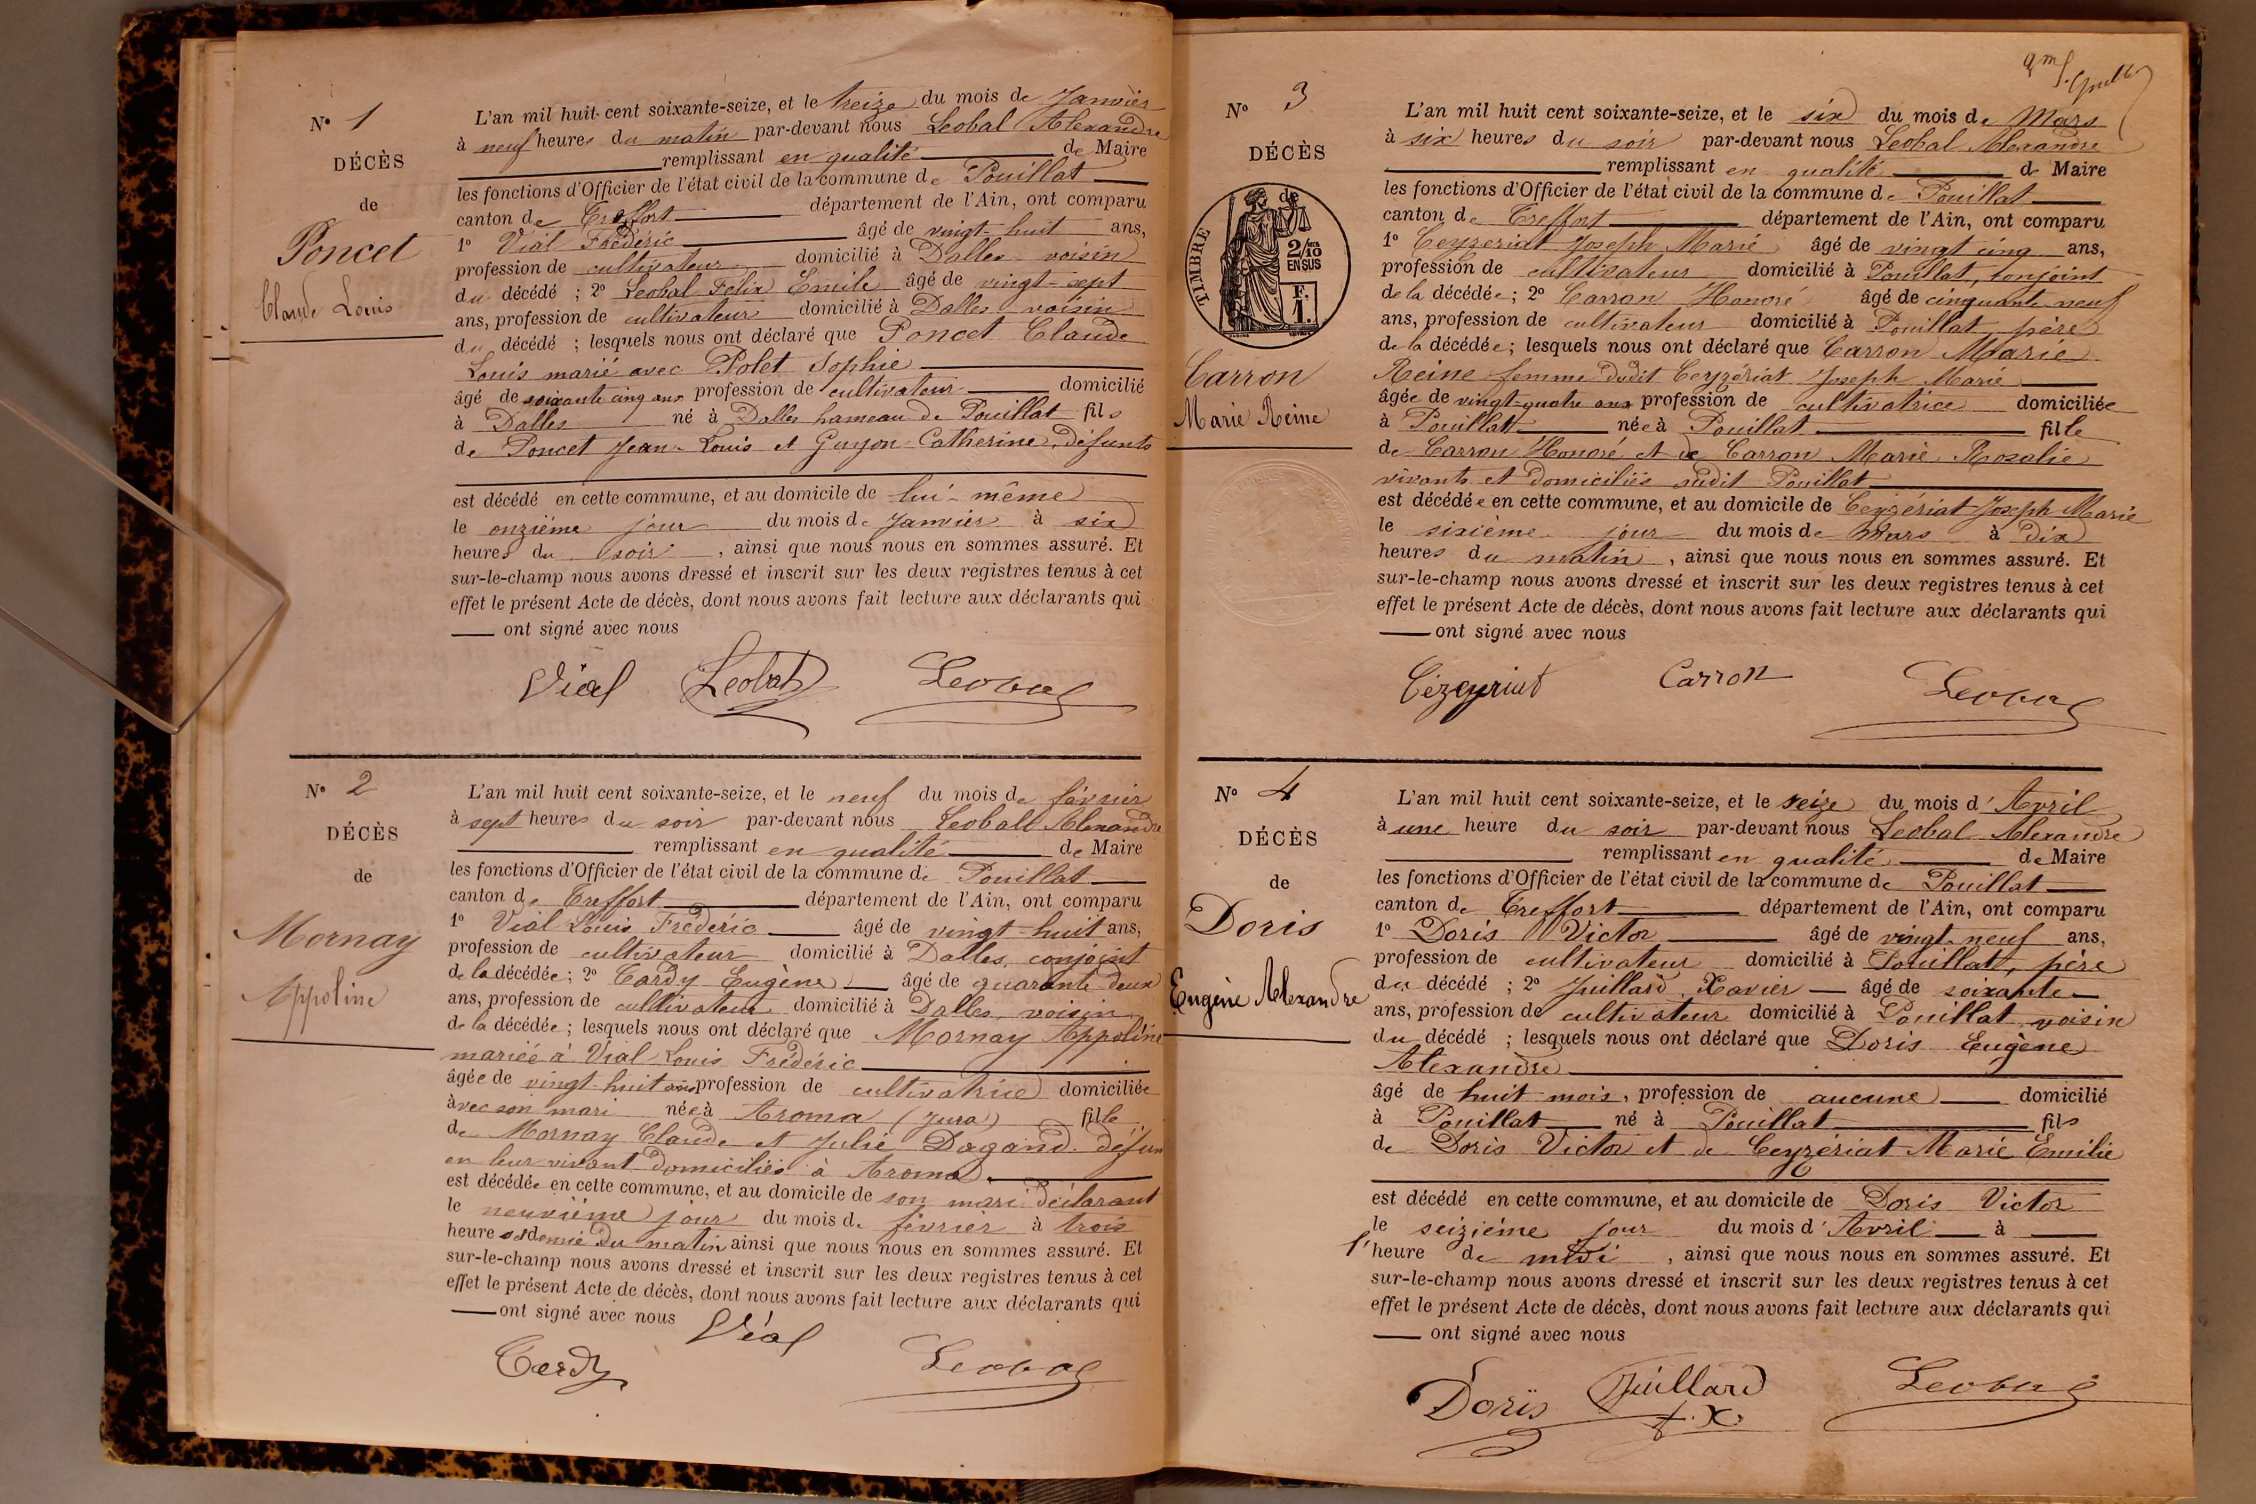 N° 1
DÉCÈS
de
Poncet
Claude Louis
L'an mil huit cent soixante-seize, et le treize du mois de Janvier
à neuf heures du matin par-devant nous Leobal Alexandre
remplissant en qualité de Maire
les fonctions d'Officier de l'état civil de la commune de Pouillat
canton de Treffort département de l'Ain, ont comparu
1° Vial Frédéric âgé de vingt-huit ans,
profession de cultivateur domicilié à Dalles voisin
du décédé ; 2° Leobal Felix Emile âgé de vingt-sept
ans, profession de cultivateur domicilié à Dalles voisin
du décédé ; lesquels nous ont déclaré que Poncet Claude
Louis marié avec Polet Sophie
âgé de soixante cinq ans profession de cultivateur domicilié
à Dalles né à Dalles hameau de Pouillat fils
de Poncet Jean-Louis et Guyon Catherine, défunts
est décédé en cette commune, et au domicile de lui-même
le onzième jour du mois de Janvier à six
heures du soir , ainsi que nous nous en sommes assuré. Et
sur-le-champ nous avons dressé et inscrit sur les deux registres tenus à cet
effet le présent Acte de décès, dont nous avons fait lecture aux déclarants qui
ont signé avec nous
Vial Leobal Leobal
N° 2
DÉCÈS
de
Mornay
Appoline
L'an mil huit cent soixante-seize, et le neuf du mois de février
à sept heures du soir par-devant nous Leoball Alexandre
remplissant en qualité de Maire
les fonctions d'Officier de l'état civil de la commune de Pouillat
canton de Treffort département de l'Ain, ont comparu
1° Vial Louis Frédéric âgé de vingt-huit ans,
profession de cultivateur domicilié à Dalles, conjoint
de la décédée ; 2° Cardy Eugène âgé de quarante deux
ans, profession de cultivateur domicilié à Dalles, voisin
de la décédée ; lesquels nous ont déclaré que Mornay Appoline
mariée à Vial Louis Frédéric
âgée de vingt-huit ans profession de cultivatrice domiciliée
avec son mari née à Aroma (Jura) fille
de Mornay Claude et Julie Dagand défun
en leur vivant domiciliés à Aroma
est décédée en cette commune, et au domicile de son mari déclarant
le neuvième jour du mois de février à trois
heure et demie du matin ainsi que nous nous en sommes assuré. Et
sur-le-champ nous avons dressé et inscrit sur les deux registres tenus à cet
effet le présent Acte de décès, dont nous avons fait lecture aux déclarants qui
ont signé avec nous Vial
Cardy Leobal
N° 3
DÉCÈS
de
TIMBRE
2/10
EN SUS
F.
1.
Carron
Marie Reine
L'an mil huit cent soixante-seize, et le six du mois de Mars
à six heures du soir par-devant nous Leobal Alexandre
remplissant en qualité de Maire
les fonctions d'Officier de l'état civil de la commune de Pouillat
canton de Treffort département de l'Ain, ont comparu
1° Ceyzeriat Joseph Marie âgé de vingt cinq ans,
profession de cultivateur domicilié à Pouillat, conjoint
de la décédée ; 2° Carron Honoré âgé de cinquante neuf
ans, profession de cultivateur domicilié à Pouillat, père
de la décédée ; lesquels nous ont déclaré que Carron Marie
Reine femme dudit Ceyzériat Joseph Marie
âgée de vingt-quatre ans profession de cultivatrice domiciliée
à Pouillat née à Pouillat fille
de Carron Honoré et de Carron Marie Rosalie
vivants et domiciliés audit Pouillat
est décédée en cette commune, et au domicile de Ceyzériat Joseph Marie
le sixième jour du mois de Mars à dix
heures du matin , ainsi que nous nous en sommes assuré. Et
sur-le-champ nous avons dressé et inscrit sur les deux registres tenus à cet
effet le présent Acte de décès, dont nous avons fait lecture aux déclarants qui
ont signé avec nous
Cézeyriat Carron Leobal
N° 4
DÉCÈS
de
Doris
Eugène Alexandre
L'an mil huit cent soixante-seize, et le seize du mois d'Avril
à une heure du soir par-devant nous Leobal Alexandre
remplissant en qualité de Maire
les fonctions d'Officier de l'état civil de la commune de Pouillat
canton de Treffort département de l'Ain, ont comparu
1° Doris Victor âgé de vingt-neuf ans,
profession de cultivateur domicilié à Pouillat, père
du décédé ; 2° Juillard Xavier âgé de soixante
ans, profession de cultivateur domicilié à Pouillat voisin
du décédé ; lesquels nous ont déclaré que Doris Eugène
Alexandre
âgé de huit mois, profession de aucune domicilié
à Pouillat né à Pouillat fils
de Doris Victor et de Ceyzériat Marie Emilie
est décédé en cette commune, et au domicile de Doris Victor
le seizième jour du mois d'Avril à
l'heure de midi , ainsi que nous nous en sommes assuré. Et
sur-le-champ nous avons dressé et inscrit sur les deux registres tenus à cet
effet le présent Acte de décès, dont nous avons fait lecture aux déclarants qui
ont signé avec nous
Doris Juillard Leobal
f. X.